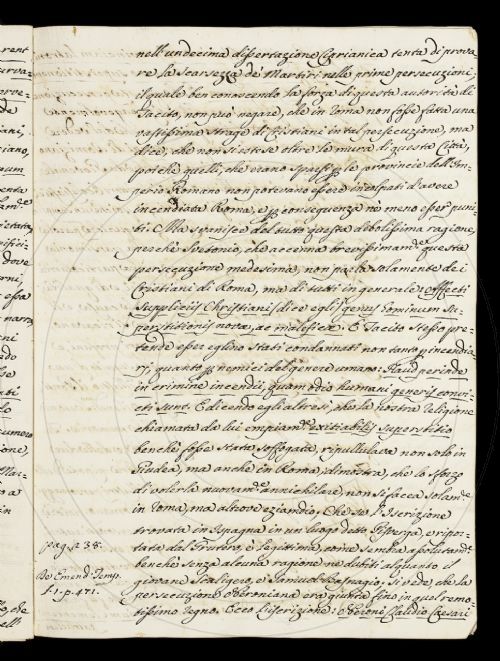 nell'undecima dissertazione Ciprianica tenta di prova-
re la scarsezza de' Martiri nelle prime persecuzioni,
il quale ben conoscendo la forza di questa autorità di
Tacito, non può negare, che in Roma non fosse fatta una
vastissima strage di Cristiani in tal persecuzione, ma
dice, che non si estese oltre le mura di questa Città,
poiche quelli, che erano sparsi p le provincie dell'Im-
perio Romano non potevano essere incolpati d'avere
incendiata Roma, e p conseguenza ne meno esser puni-
ti. Ma svanisce del tutto questa debolissima ragione,
perche Svetonio, che accenna brevissimam.e questa
persecuzione medesima, non parla solamente de i
Cristiani di Roma, ma di tutti in generale: affecti
Suppliciis Christiani (dic'egli) genus hominum su-
perstitionis novae, ac maleficae. E Tacito stesso pre-
tende esser eglino stati condannati non tanto p incendia-
rj, quanto p nemici del genere umano: Haud perinde
in crimine incendii, quam odio humani generis convi-
cti sunt. E dicendo egli altresì, che la nostra Religione
chiamata da lui empiam.e exitiabilis superstitio
benche fosse stata soffogata, ripullulava non solo in
Giudea, ma anche in Roma, dimostra, che lo sforzo
di volerla nuovam.e annichilare, non si facea solam.e
in Roma, ma altrove eziandio. Che se l'Iscrizione
trovata in Ispagna in un luogo detto Pisverga, e ripor-
tata dal Grutero, è legittima, come sembra assolutam.e
benche senza alcuna ragione ne dubiti alquanto il
giovane Scaligero, e Samuel Basnagio, si vede, che la
persecuzione Neroniana era giunta fino in quel remo-
tissimo Regno. Ecco l'iscrizione: Neroni Claudio Caesari
pag. 238.
De Emend. Temp.
l. 5. p. 471.